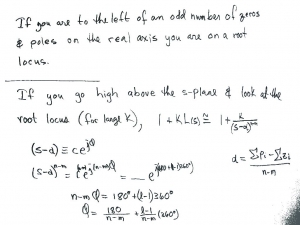 If you are to the left of an odd number of zeros
& poles on the real axis you are on a root
locus.
If you go high above the s-plane & look at the
root locus (for large K), 1 + K L(s) ≅ 1 + K/(s-α)^(n-m)
(s-α) ≡ c e^(jφ)
α = (ΣPi - ΣZi)/(n-m)
n-m φ = 180° + (l-1) 360°
φ = 180/(n-m) + (l-1)/(n-m) (360°)